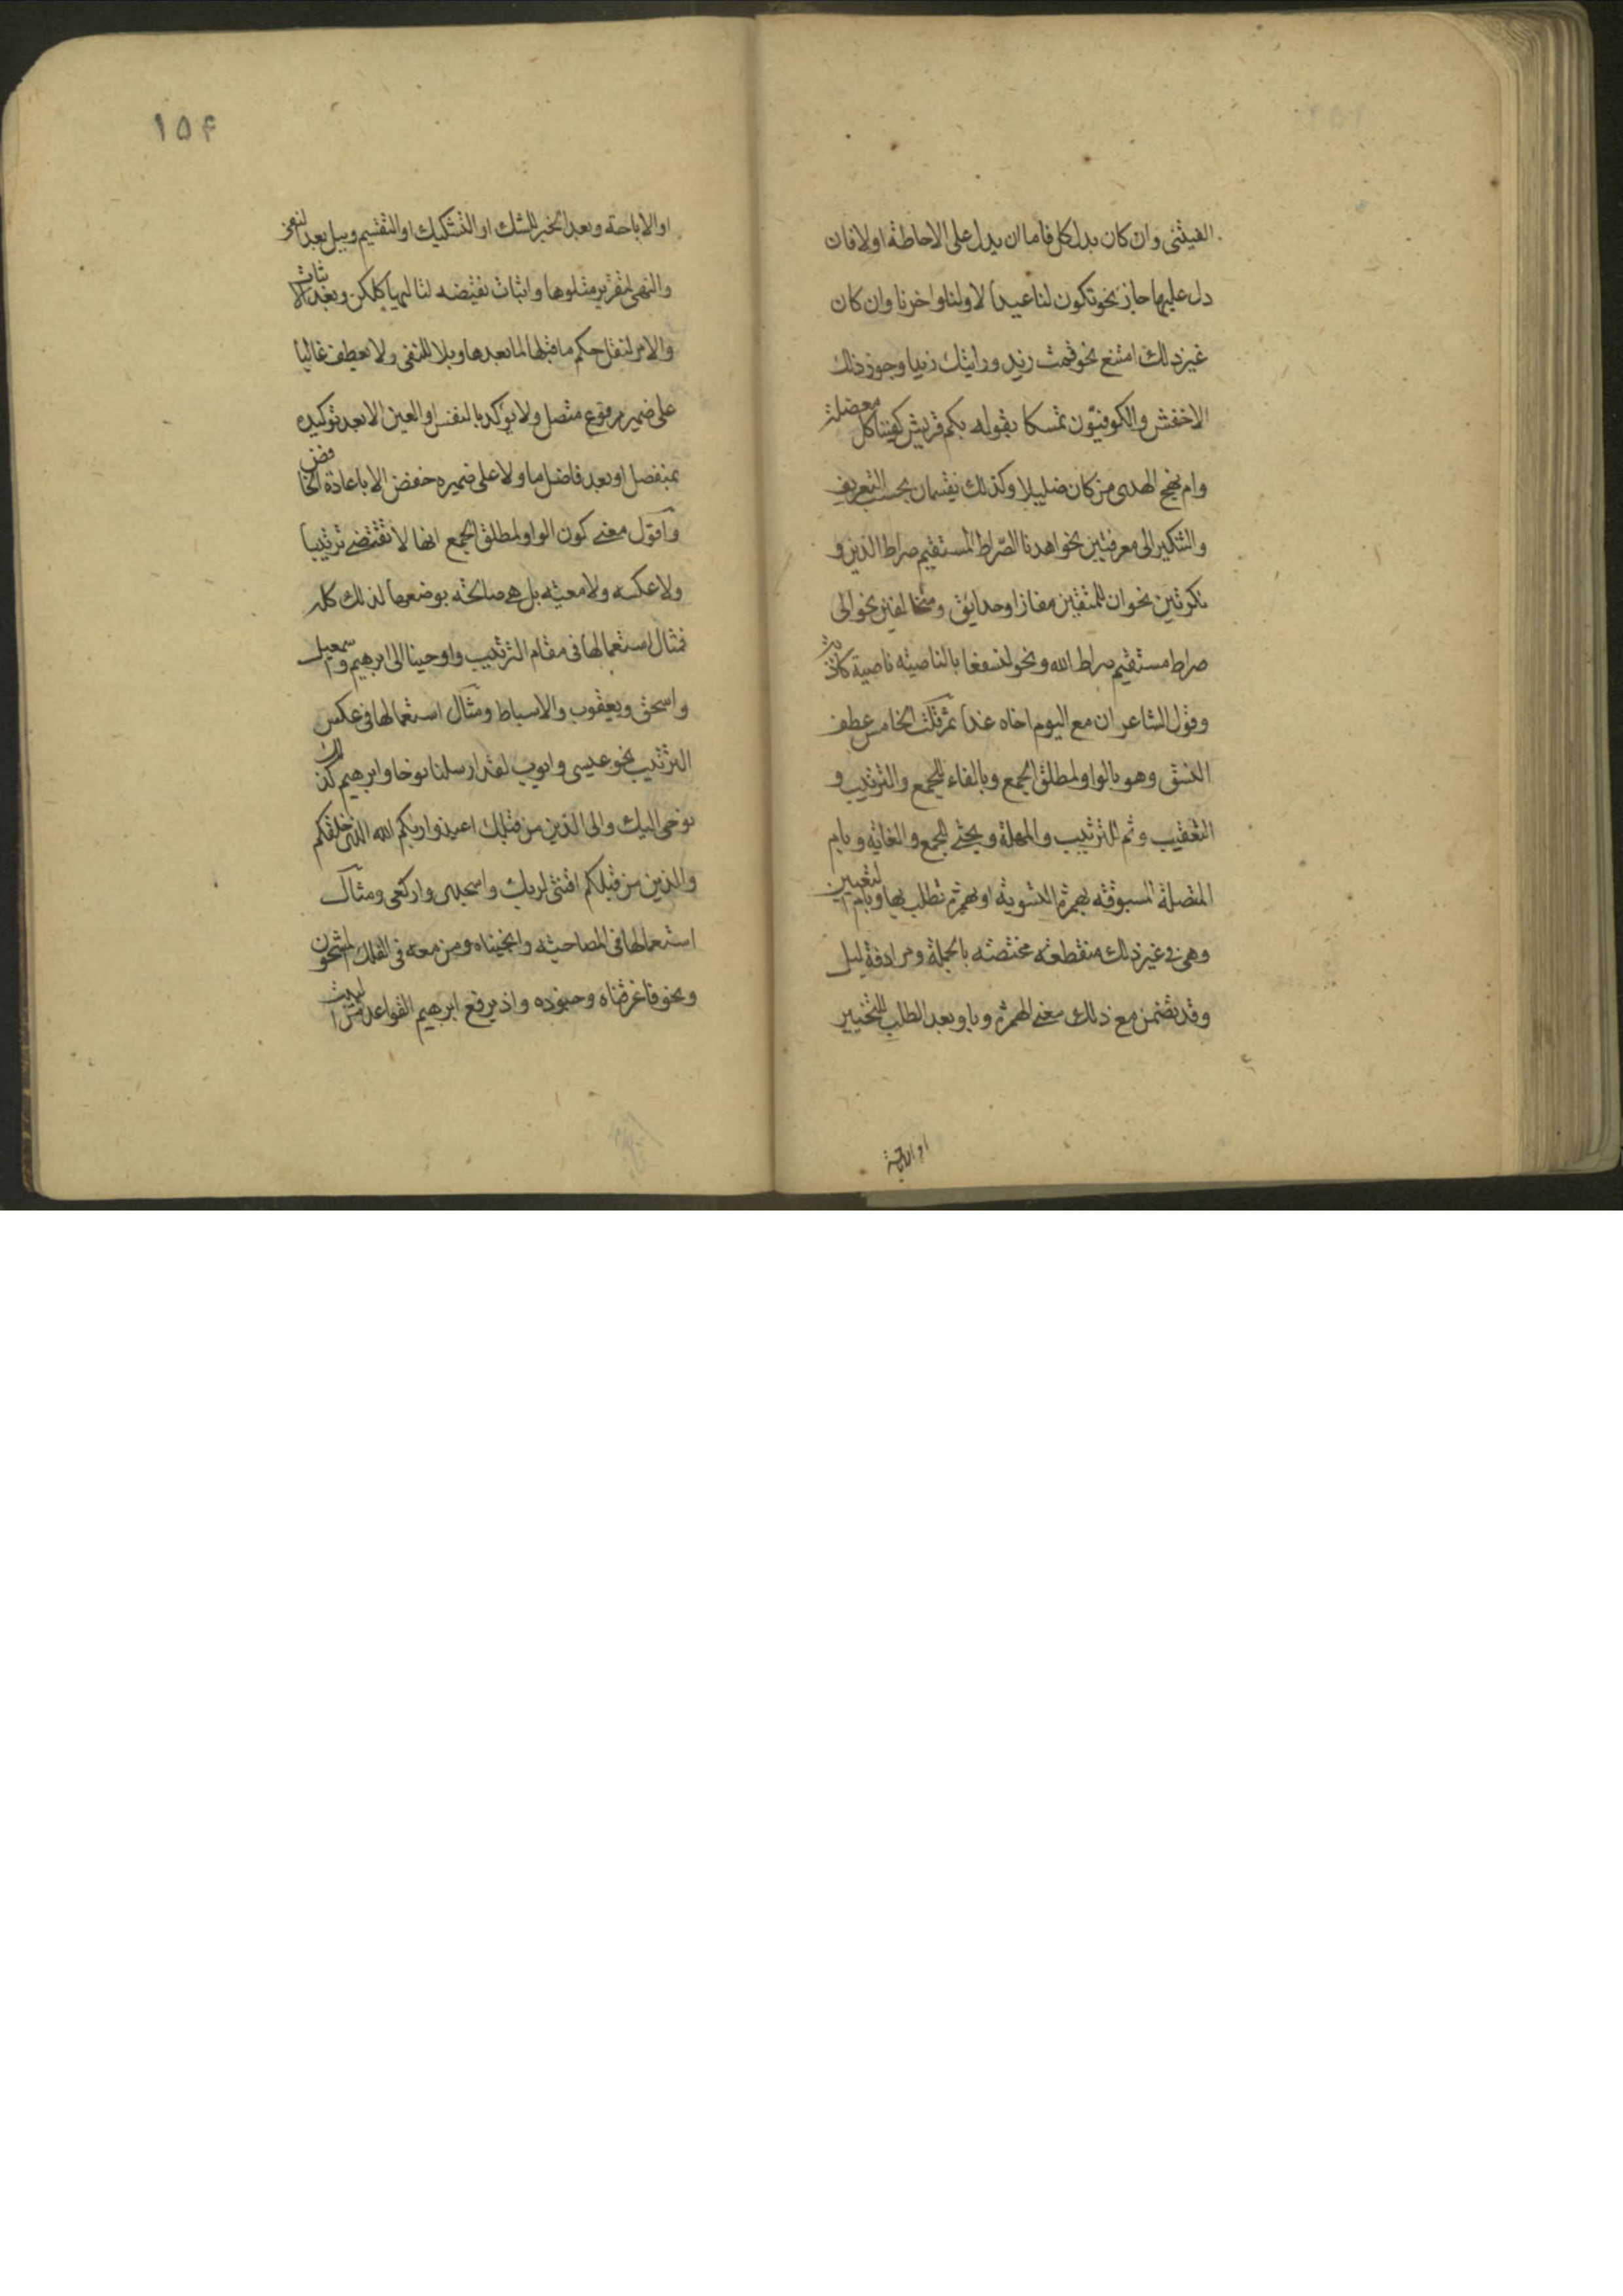 الفيتنى وان كان بدل كل فاما ان يدل على الاحاطة اولا فان
دل عليها جاز نحو تكون لنا عيدا لاولنا واخرنا وان كان
غير ذلك امتنع نحو قمت زيد ورايتك زيدا وجوز ذلك
الاخفش والكوفيون تمسكا بقوله بكم قريش كفينا كل معضلة
وام نهج الهدى من كان ضليلا وكذلك ينقسمان بحسب التعريف
والتنكير الى معرفتين نحو اهدنا الصراط المستقيم صراط الذين و
نكرتين نحو ان للمتقين مفازا وحدايق ومتخالفين نحو الى
صراط مستقيم صراط الله ونحو لنسفعا بالناصية ناصية كاذبة
وقول الشاعر ان مع اليوم اخاه غدا ثم قلت الخامس عطف
النسق وهو بالواو لمطلق الجمع وبالفاء للجمع والترتيب و
التعقيب وثم للترتيب والمهلة وبحتى للجمع والغاية وبام
المتصلة المسبوقة بهمزة التسوية او بهمزة تطلب بها وبام التعيين
وهى فى غير ذلك منقطعة مختصة بالجملة ومرادفة لبل
وقد تضمن مع ذلك معنى الهمزة وباو بعد الطلب للتخيير
او الاباحة
١٥۴
او الاباحة وبعد الخبر للشك او التشكيك او التقسيم وببل بعد النفى
والنهى لتقرير متلوها واثبات نقيضه لتاليها كلكن وبعد الاثبات
والامر لنقل حكم ما قبلها لما بعدها وبلا للنفى ولا يعطف غالبا
على ضمير مرفوع متصل ولا يؤكد بالنفس او العين الا بعد توكيده
بمنفصل او بعد فاصل ما ولا على ضمير خفض الا باعادة الخافض
وآقول معنى كون الواو لمطلق الجمع انها لا تقتضى ترتيبا
ولا عكسه ولا معية بل هى صالحة بوضعها لذلك كله
فمثال استعمالها فى مقام الترتيب واوحينا الى ابرهيم واسمعيل
واسحق ويعقوب والاسباط ومثال استعمالها فى عكس
الترتيب نحو عيسى وايوب لقد ارسلنا نوحا وابرهيم كذلك
نوحى اليك والى الذين من قبلك اعبدوا ربكم الله الذى خلقكم
والذين من قبلكم اقنتى لربك واسجدى واركعى ومثال
استعمالها فى المصاحبة وانجيناه ومن معه فى الفلك المشحون
ونحو فاغرقناه وجنوده واذ يرفع ابرهيم القواعد من البيت